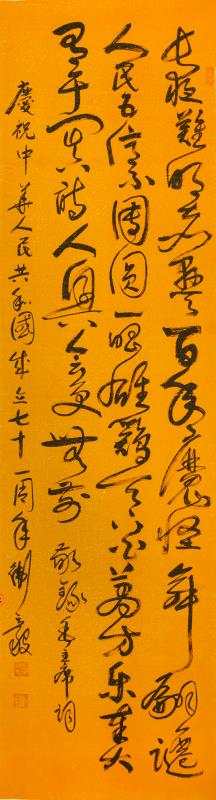 长夜難明赤县天百年魔怪舞翩躚
人民五億不團圓一唱雄鷄天下白萬方乐奏
有于阗诗人興会更無前 敬錄毛主席詞
慶祝中華人民共和國成立七十一周年